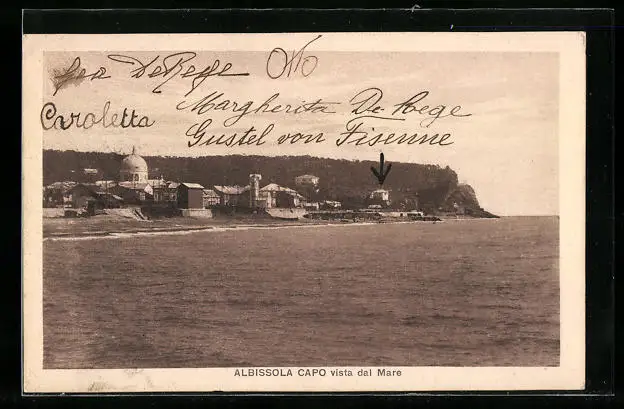 Lea De Rege Otto
Caroletta
Margherita De Rege
Gustel von Fisenne
ALBISSOLA CAPO vista dal Mare